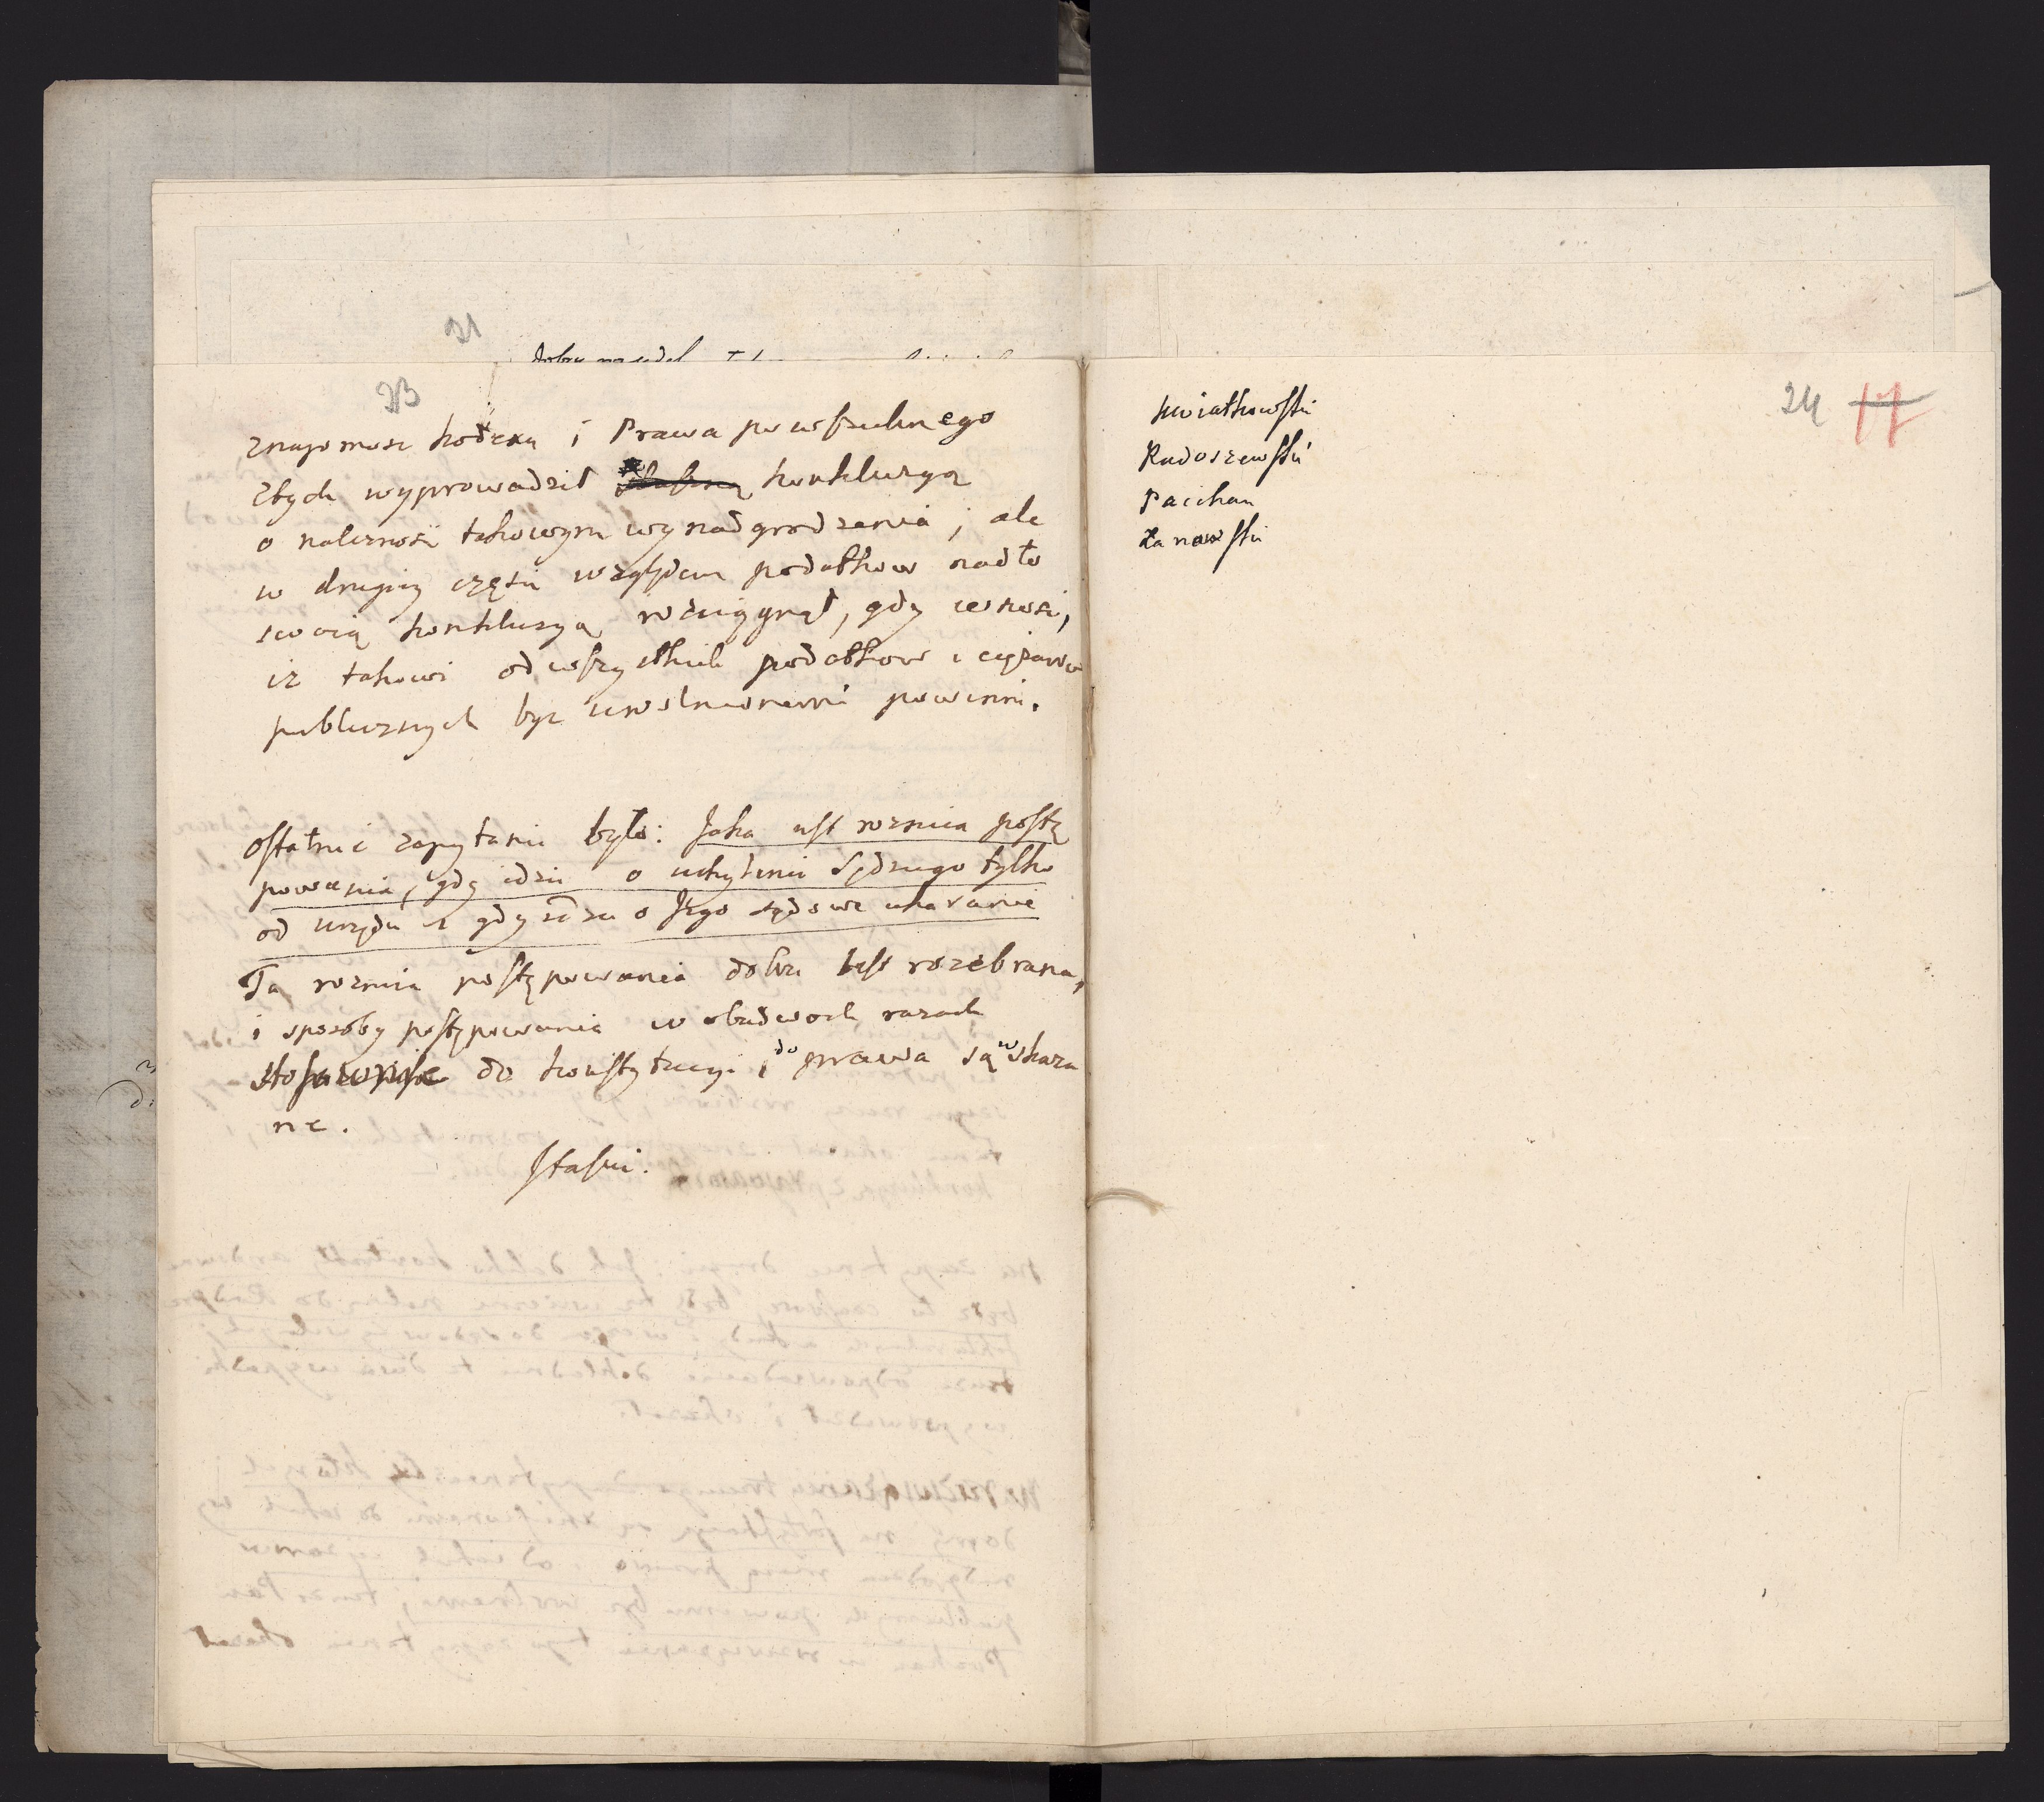 21
23
znajomosc kodexu i Prawa powszechnego
ztych wyprowadził konkluzyą
o należnosci takowym wynadgrodzenia, ale
w drugiey części względem podatkow nadto
swoią konkluzyą rozciągnął, gdy wnosi,
iż takowi od wszystkich podatkow i ciężarow
publicznych byc uwolnionemi powinni.
ostatnie zapytanie było: Jaka iest roznica postę
powania, gdy idzie o uchylenie Sędziego tylko
od urzędu a gdy idzie o Jego sądowe ukaranie
Ta roznica postępowania dobrze iest rozebrana,
i sposoby postępowania w obudwoch razach
stosownie do konstytucyi i do prawa są wskaza
ne.
Staszic.
24 17
Kwiatkowski
Radoszewski
Paschan